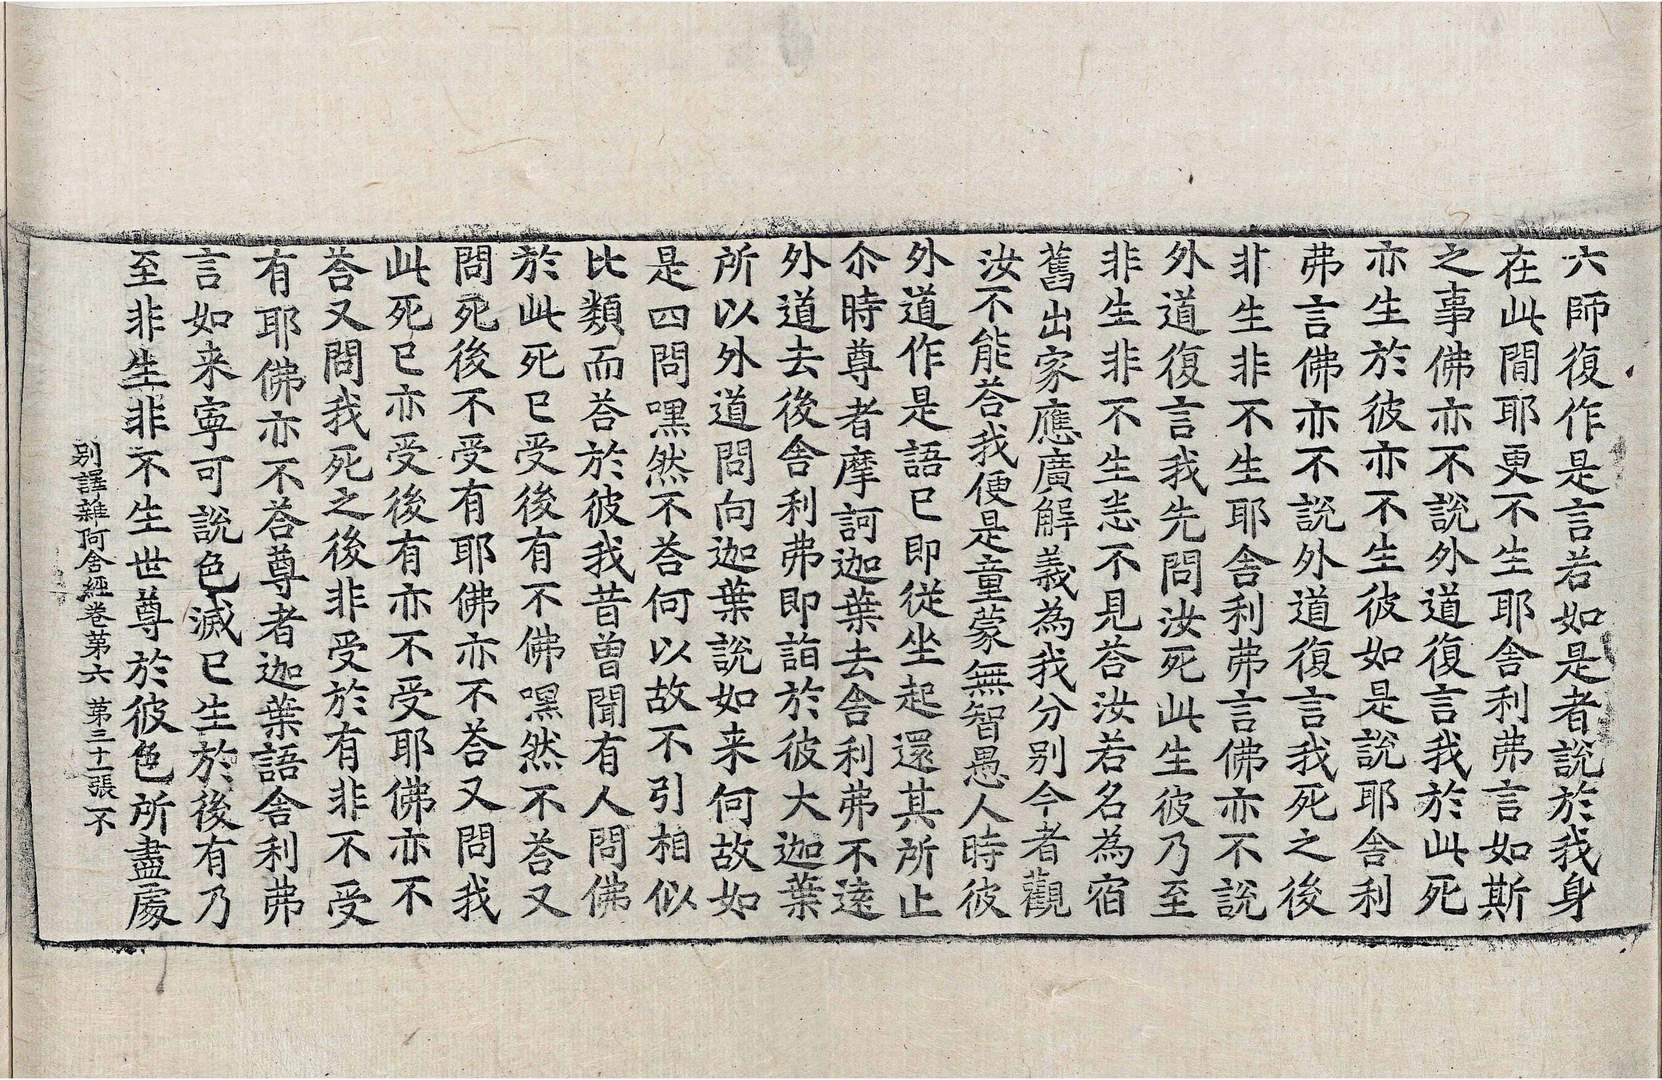 六師復作是言若如是者說於我身
在此間耶更不生耶舍利弗言如斯
之事佛亦不說外道復言我於此死
亦生於彼亦不生彼如是說耶舍利
弗言佛亦不說外道復言我死之後
非生非不生耶舍利弗言佛亦不說
外道復言我先問汝死此生彼乃至
非生非不生悉不見荅汝若名為宿
舊出家應廣解義為我分别今者觀
汝不能荅我便是童蒙無智愚人時彼
外道作是語已即従坐起還其所止
尒時尊者摩訶迦葉去舍利弗不遠
外道去後舍利弗即詣於彼大迦葉
所以外道問向迦葉說如来何故如
是四問嘿然不荅何以故不引相似
比類而荅於彼我昔曾聞有人問佛
於此死已受後有不佛嘿然不荅又
問死後不受有耶佛亦不荅又問我
此死已亦受後有亦不受耶佛亦不
荅又問我死之後非受於有非不受
有耶佛亦不荅尊者迦葉語舍利弗
言如来寧可說色滅已生於後有乃
至非生非不生世尊於彼色所盡處
别譯雜阿含經卷第六 第三十一張 不